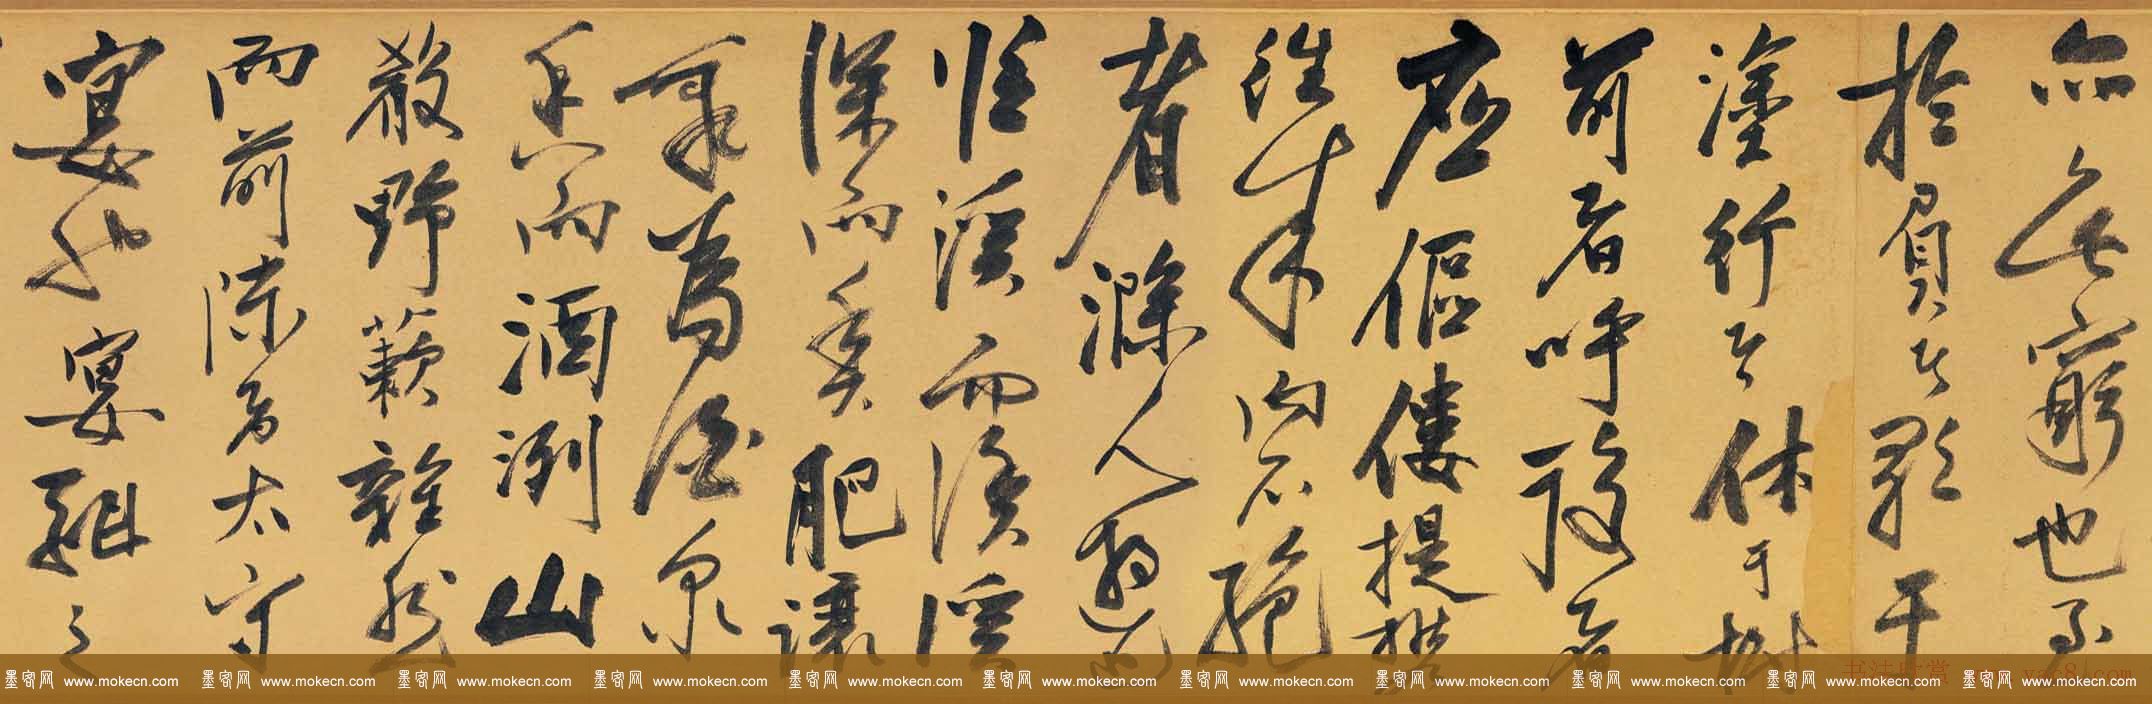 亦無窮也至
於負者歌于
塗行者休于樹
前者呼後者
應傴僂提攜
往來而不絕
者滁人遊也
臨溪而漁溪
深而魚肥釀
泉為酒泉
香而酒洌山
殽野蔌雜然
而前陳者太守
宴也宴酣之
墨客网 www.mokecn.com 墨客网 www.mokecn.com 墨客网 www.mokecn.com 墨客网 www.mokecn.com 墨客网 www.mokecn.com 墨客网 www.mokecn.com 墨客网 www.mokecn.com 墨客网 www.mokecn.com 墨客网 www.mokecn.com 墨客网 www.mokecn.com 墨客网 www.mokecn.com
书法欣赏